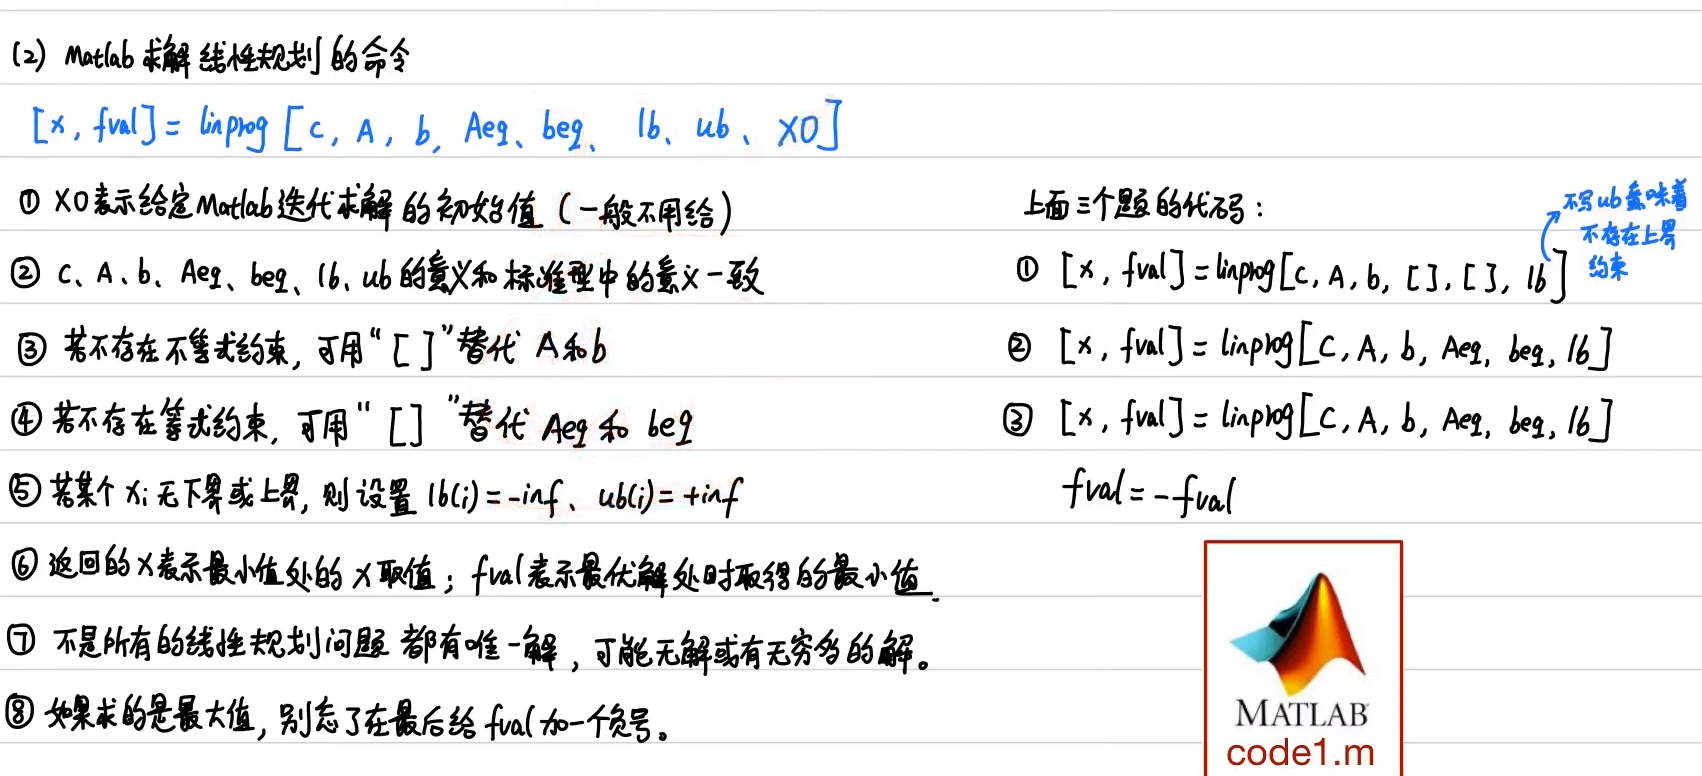 (2) Matlab求解线性规划的命令
[x, fval] = linprog [c, A, b, Aeq、beq、 lb、ub、X0]
① X0表示给定Matlab迭代求解的初始值（一般不用给）
② c、A、b、Aeq、beq、lb、ub的意义和标准型中的意义一致
③ 若不存在不等式约束，可用“[ ]”替代 A和b
④ 若不存在等式约束，可用“[]”替代 Aeq 和 beq
⑤ 若某个 xi 无下界或上界，则设置 lb(i) = -inf、ub(i) = +inf
⑥ 返回的x表示最小值处的x取值；fval表示最优解处时取得的最小值.
⑦ 不是所有的线性规划问题都有唯一解，可能无解或有无穷多的解。
⑧ 如果求的是最大值，别忘了在最后给fval加一个负号。
上面三个题的代码：
不写ub意味着
不存在上界
约束
① [x, fval] = linprog[c, A, b, [], [], lb]
② [x, fval] = linprog[C, A, b, Aeq, beq, lb]
③ [x, fval] = linprog[C, A, b, Aeq, beq, lb]
fval = -fval
MATLAB
code1.m